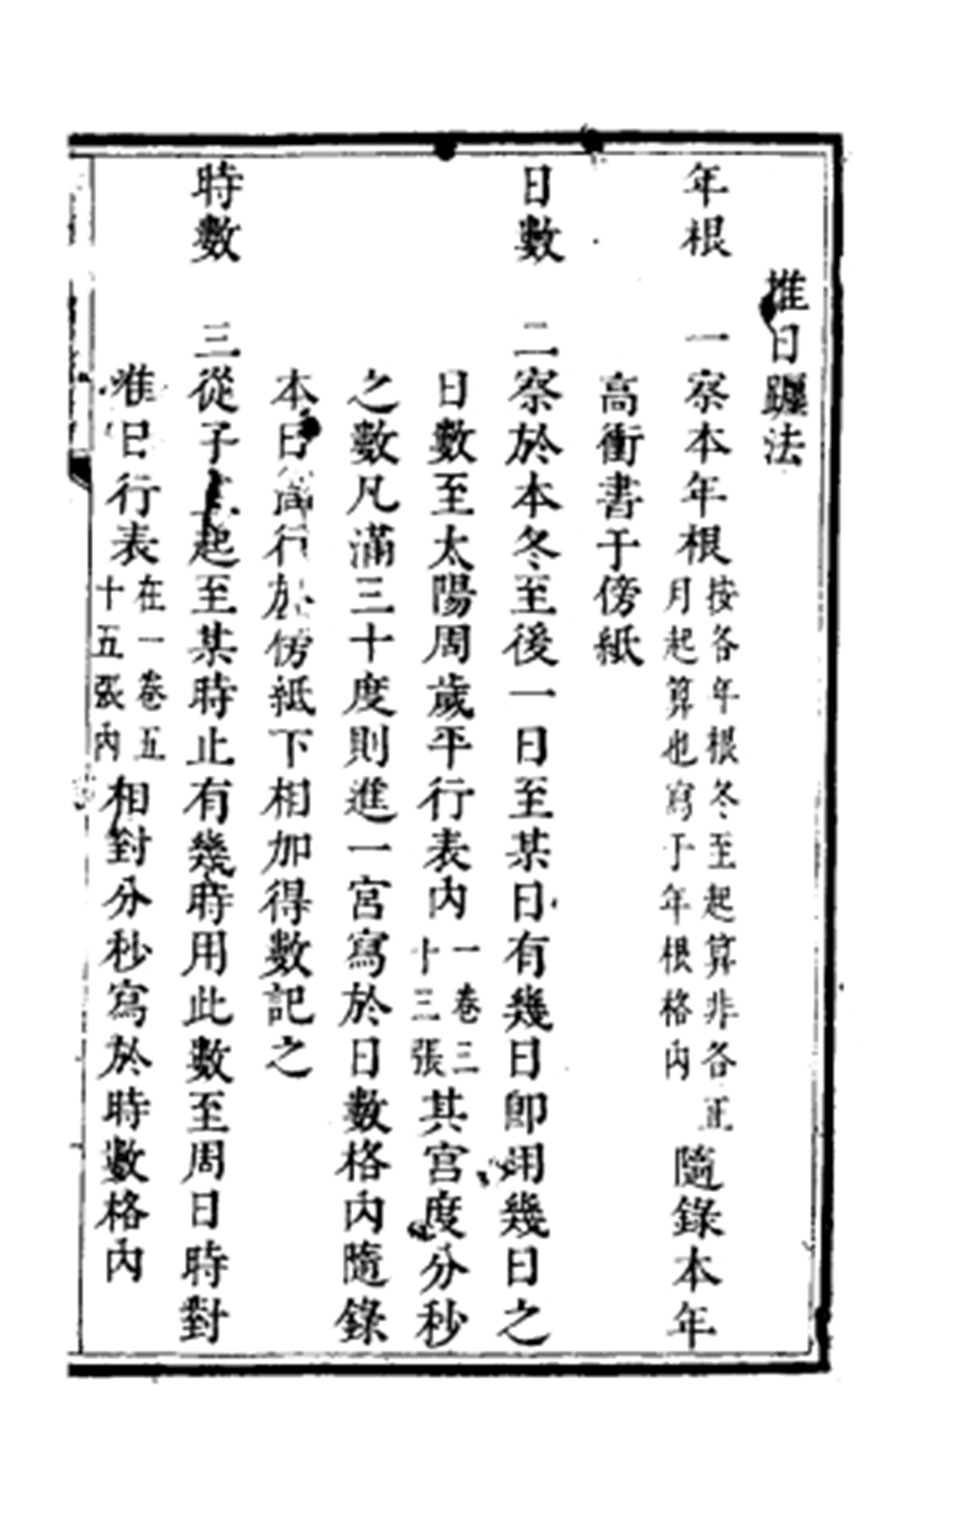 推日躔法
年根　一察本年根按各年根冬至起算非各正月起算也寫于年根格內隨錄本年
高衝書于傍紙
日數　二察於本冬至後一日至某日有幾日卽用幾日之
日數至太陽周歲平行表內一卷三十三張其宮度分秒
之數凡滿三十度則進一宮寫於日數格內隨錄
本日行於傍紙下相加得數記之
時數　三從子起至某時止有幾時用此數至周日時對
准日行表在一卷五十五張內相對分秒寫於時數格內